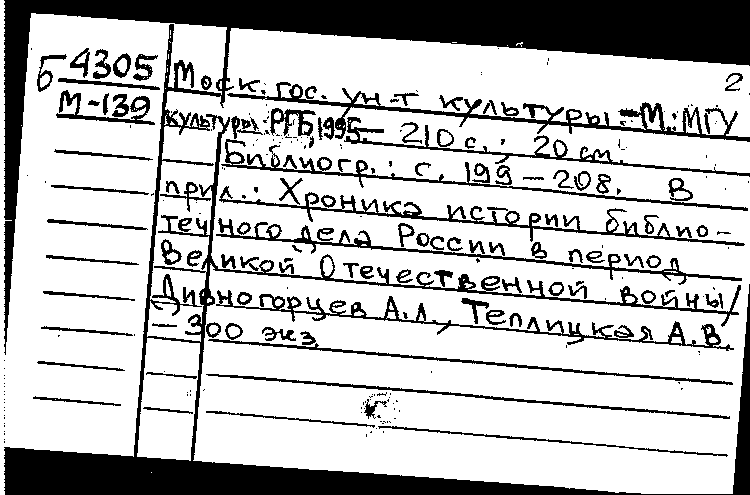 2
Б 4305
М-139
Моск. гос. ун-т культуры. - М.: МГУ
культуры: РГБ, 1995. - 210 с.; 20 см.
Библиогр.: с. 199 - 208. В
прил.: Хроника истории библио-
течного дела России в период
Великой Отечественной войны/
Дивногорцев А.Л., Теплицкая А.В.
- 300 экз.